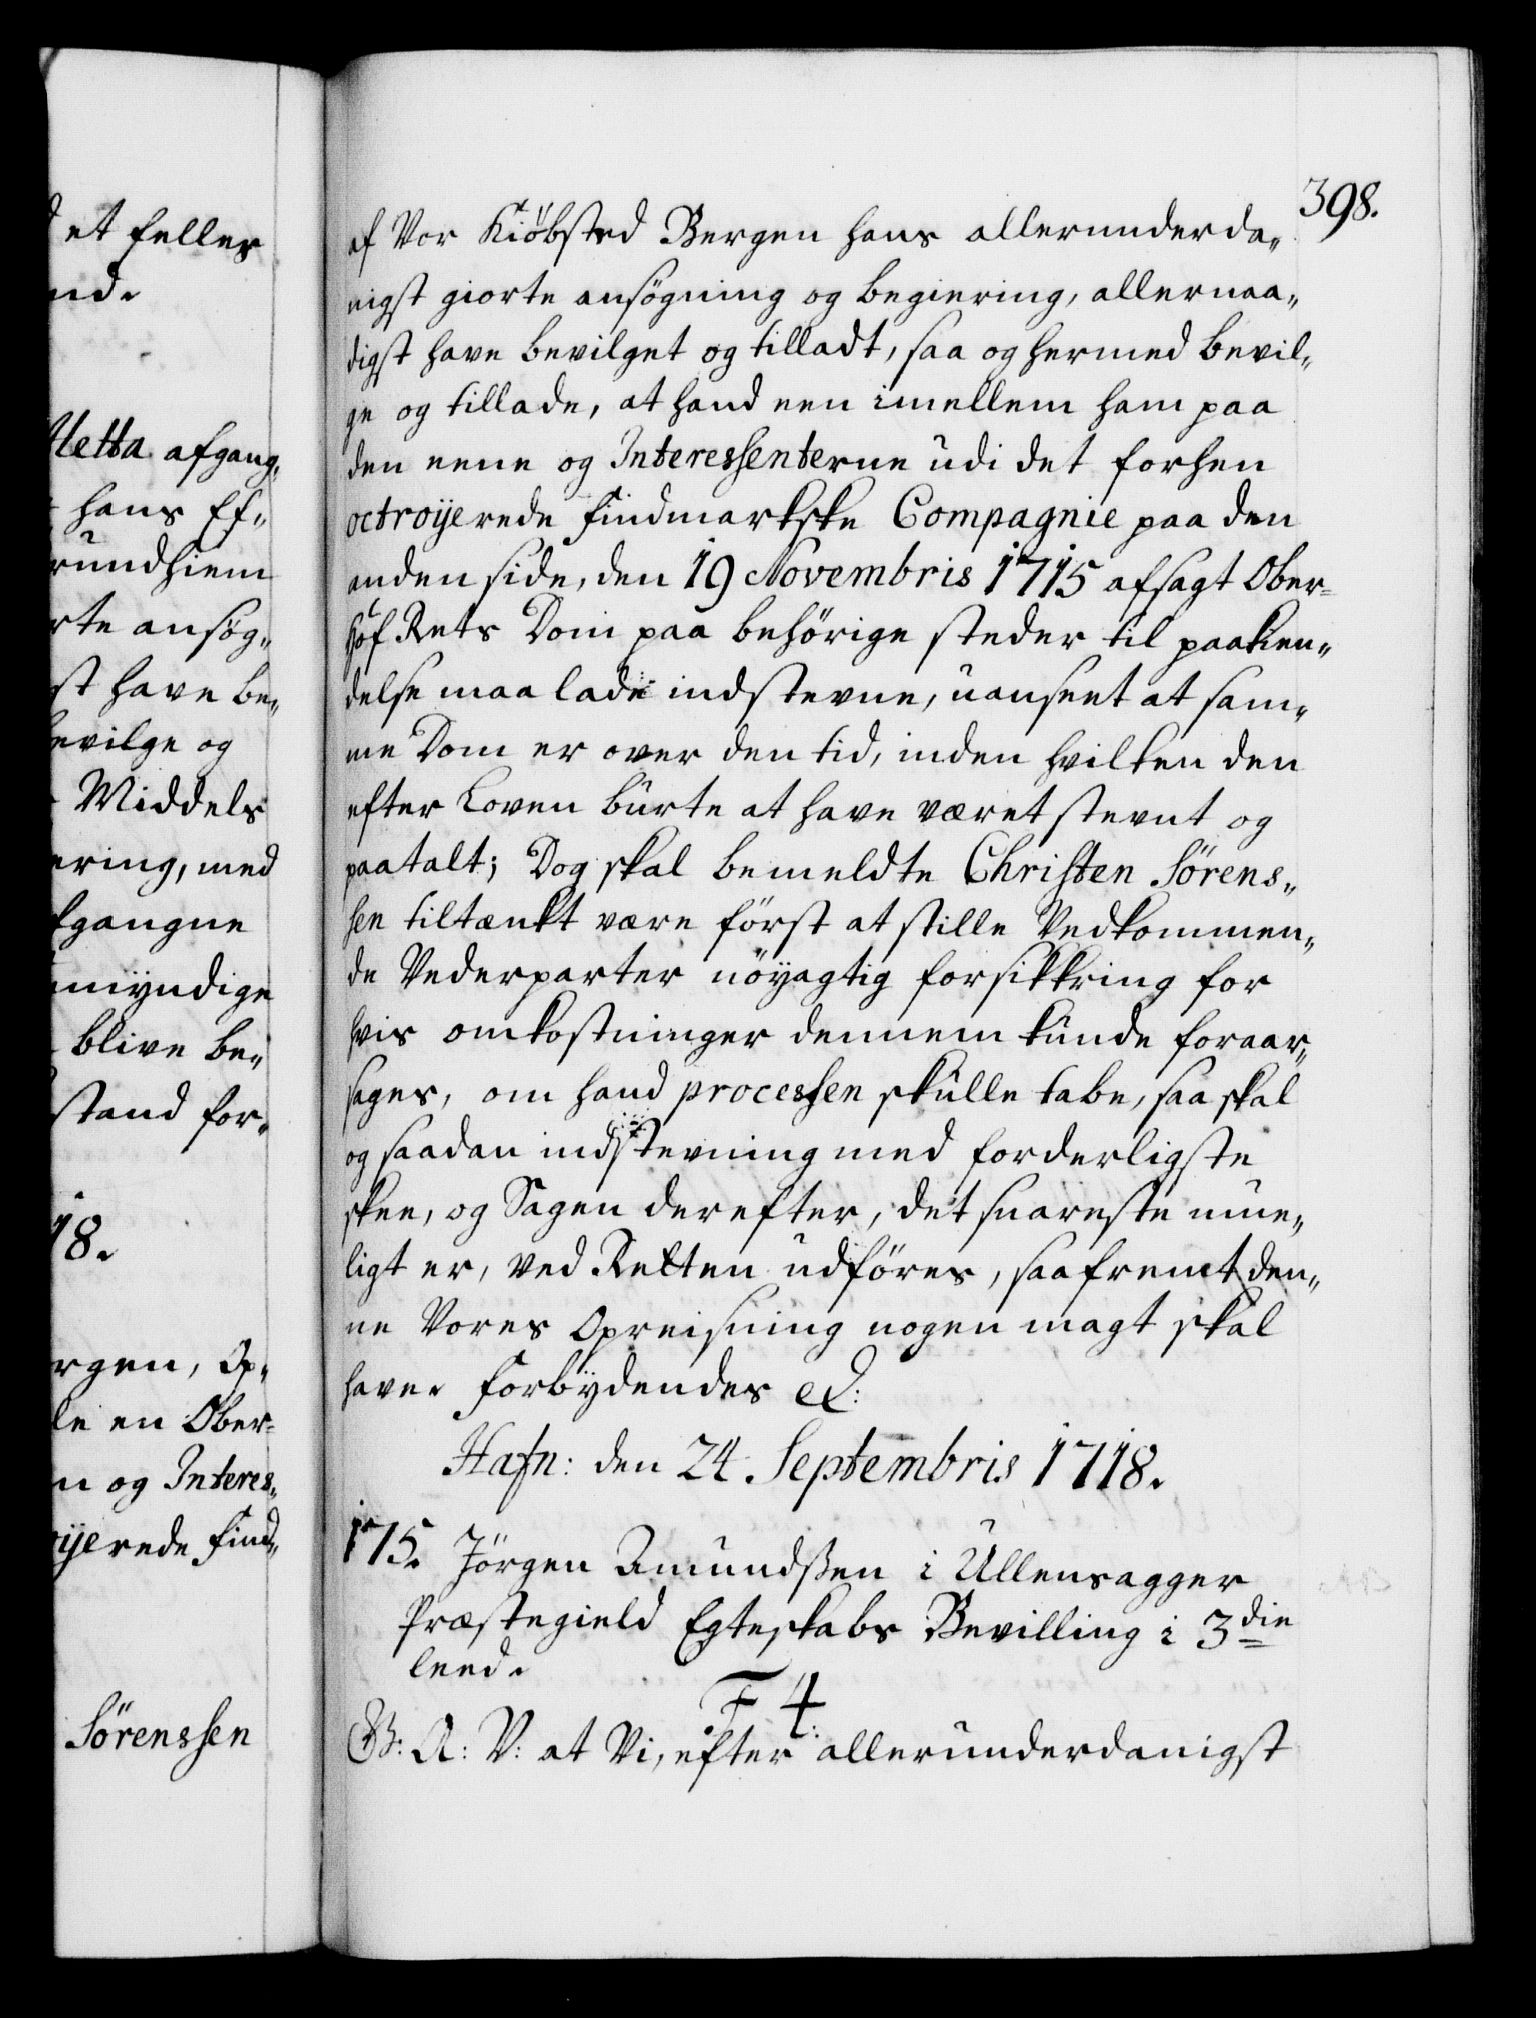 et felles
nd.
Metta afgang„
hans Ef„
rundhiem
rte ansøg„
st have be„
bevilge og
Middels
ering, med
fgangne
umÿndige
blive be„
stand for„
18.
rgen, Op„
le en Ober=
n og Interes„
oÿerede Find„
Sörenssen
398.
af Vor Kiöbsted Bergen hans allerunderda„
nigst giorte ansögning og begiering, allernaa„
digst have bevilget og tilladt, saa og hermed bevil„
ge og tillade, at hand een imellem ham paa
den eene og Interessenterne udi det forhen
octroÿerede Findmarkske Compagnie paa den
anden side, den 19 Novembris 1715 afsagt Ober=
Hof Rets Dom paa behörige steder til paakien„
delse maa lade indstevne, uanseet at sam„
me Dom er over den tid, inden hvilken den
efter Loven burte at have været stevnt og
paatalt; Dog skal bemeldte Christen Sörens„
sen tiltænkt være först at stille Vedkommen„
de Vederparter nöÿagtig forsikkring for
hvis omkostninger dennem kunde foraar„
sages, om hand processen skulle tabe, saa skal
og saadan indstevning med forderligste
skee, og Sagen derefter, det snareste mue„
ligt er, ved Retten udföres, saafremt den„
ne Vores Opreisning nogen magt skal
have. Forbÿdendes etc:
Hafn: den 24 Septembris 1718.
175. Jörgen Amundssen i Ullensagger
Præstegield Egteskabs Bevilling i 3die
leed.
F 4:
G: A: V: at Vi, efter allerunderdanigst